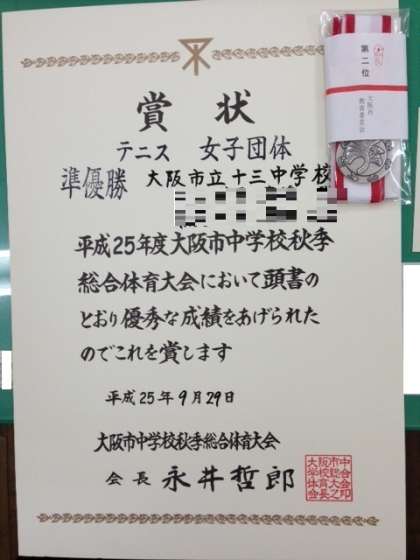 賞状
テニス 女子団体
準優勝 大阪市立十三中学校
平成25年度大阪市中学校秋季
総合体育大会において頭書の
とおり優秀な成績をあげられた
のでこれを賞します
平成25年9月29日
大阪市中学校秋季総合体育大会
会長 永井哲郎
第二位
大阪市
教育委員会